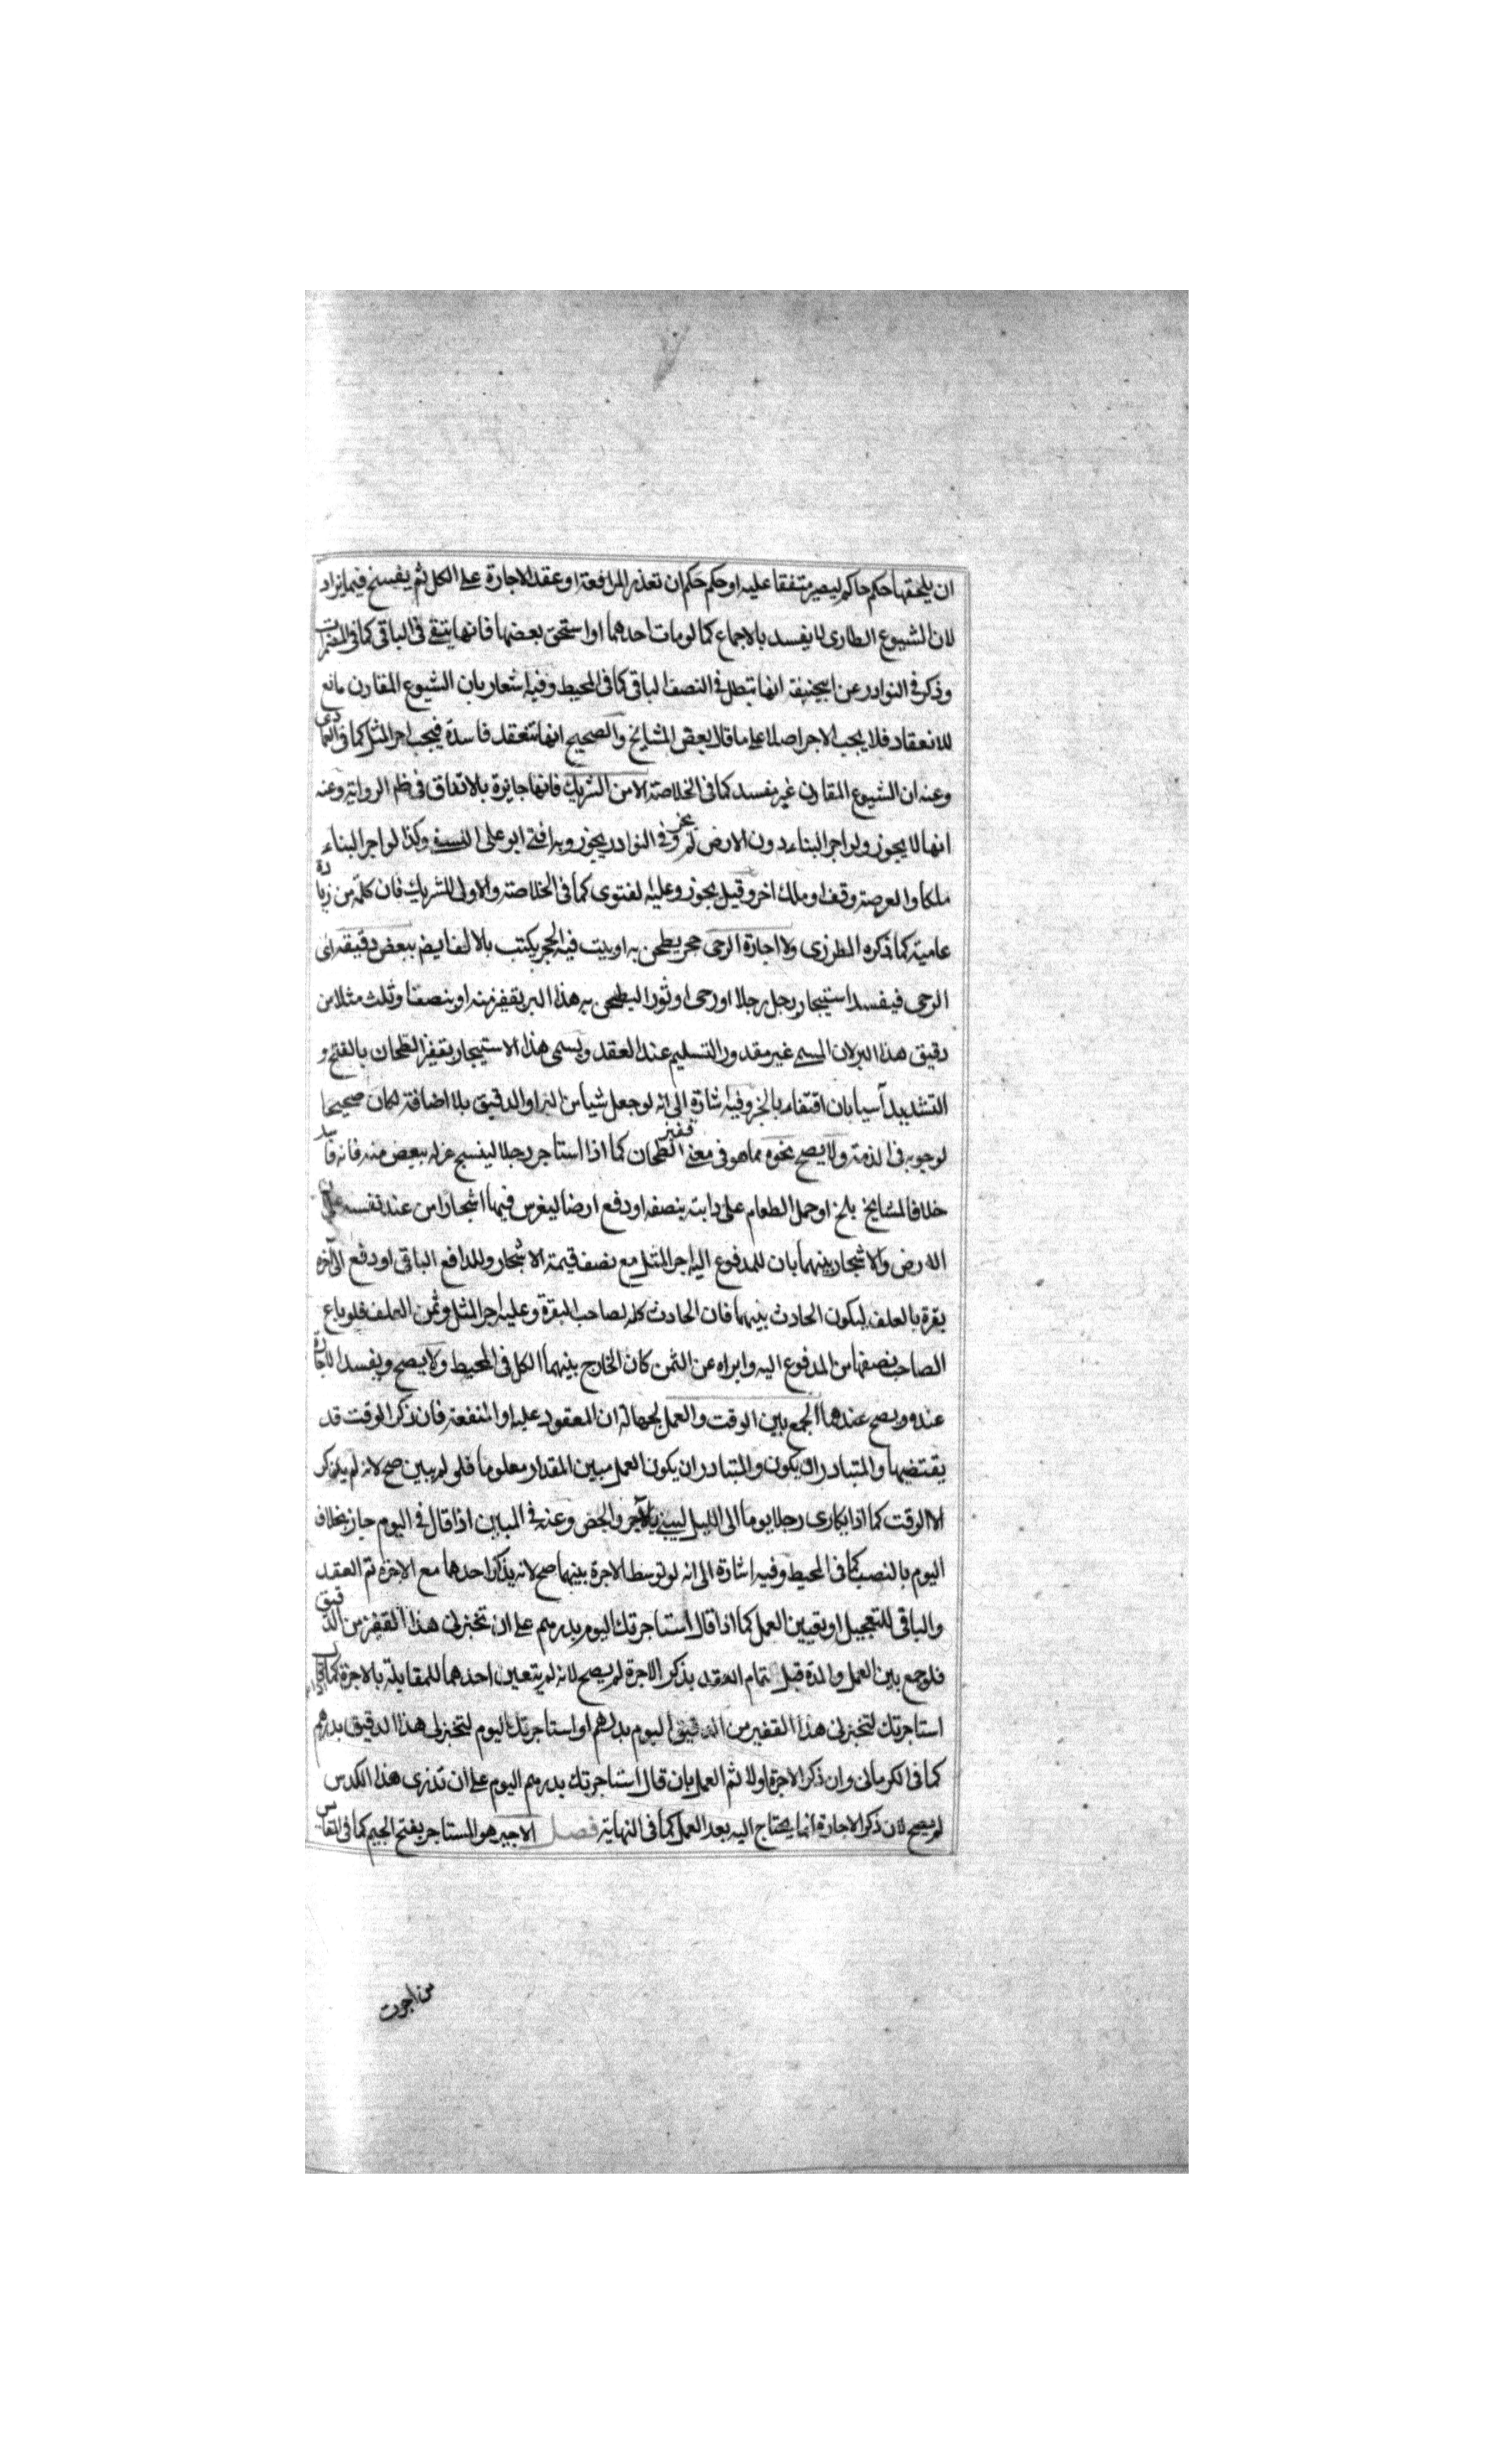 ان يلحقها حكم حاكم ليصير متفقا عليه او حكم حكم ان تعذر المرافعة او عقد الاجارة على الكل ثم يفسخ فيما يزاد
لان الشيوع الطارى لا يفسد بالاجماع كما لو مات احدهما او استحق بعضها فانها يبقى فى الباقى كما فى المضمرات
وذكر فى النوادر عن ابيحنيفة انها تبطل فى النصف الباقى كما فى المحيط وفيه اشعار بان الشيوع المقارن مانع
للانعقاد فلا يجب الاجر اصلا على ما قال بعض المشايخ والصحيح انها تنعقد فاسدة فيجب اجر المثل كما فى العمادى
وعنه ان الشيوع المقارن غير مفسد كما فى الخلاصة الا من الشريك فانها جائزة بالاتفاق فى ظم الرواية وعنه
انها لا يجوز ولو اجر البناء دون الارض لم يجز وفى النوادر يجوز وبه افتى ابو على النسفى وكذا لو اجر البناء
ملكا والعرصة وقف او ملك اخر وقيل يجوز وعليه الفتوى كما فى الخلاصة والاولى للشريك فان كلمة من زيادة
عامية كما ذكره المطرزى ولا اجارة الرحى حجر يطحن به او بيت فيه الحجر يكتب بالالف ايضم ببعض دقيقه اى
الرحى فيفسد استيجار رجل رجلا او رحى او ثورا ليطحن به هذا البر بقفيز منه او بنصف او ثلث مثلا من
دقيق هذا البر لان المسمى غير مقدور التسليم عند العقد ويسمى هذا الاستيجار بقفيز الطحان بالفتح و
التشديد آسيابان اقتفاء بالخبر وفيه اشارة الى انه لو جعل شيا من البر او الدقيق بلا اضافة لكان صحيحا
لوجوبه فى الذمة ولا يصح نحوه مما هو فى معنى قفيز الطحان كما اذا استاجر رجلا لينسج غزله ببعض منه فانه فاسد
خلافا لمشايخ بلخ او حمل الطعام على دابته بنصفه او دفع ارضا ليغرس فيها اشجارا من عند نفسه على ان
الارض والاشجار بينهما بان للمدفوع اليه اجر المثل مع نصف قيمة الاشجار وللدافع الباقى او دفع الى آخر
بقرة بالعلف ليكون الحادث بينهما فان الحادث كله لصاحب البقرة وعليه اجر المثل وثمن العلف فلو باع
الصاحب نصفها من المدفوع اليه وابراه عن الثمن كان الخارج بينهما الكل فى المحيط ولا يصح ويفسد الاجارة
عنده ويصح عندهما الجمع بين الوقت والعمل لجهالة ان المعقود عليه او المنفعة فان ذكر الوقت قد
يقتضيها والمتبادر ان يكون والمتبادر ان يكون العمل مبين المقدار معلوما فلو لم يبين صح لانه لم يذكر
الا الوقت كما اذا يكارى رجلا يوما الى الليل ليبنى بالآجر والجص وعنه فى المباين اذا قال فى اليوم جاز بخلاف
اليوم بالنصب كما فى المحيط وفيه اشارة الى انه لو توسط الاجرة بينهما صح لانه يذكر احدهما مع الاجرة تم العقد
والباقى للتعجيل او تعيين العمل كما اذا قال استاجرتك اليوم بدرهم على ان تخبز لى هذا القفيز من الدقيق
فلو جمع بين العمل والمدة قبل تمام العقد بذكر الاجرة لم يصح لانه لم يتعين احدهما للمقابلة بالاجرة كما فى
استاجرتك لتخبز لى هذا القفيز من الدقيق اليوم بدرهم او استاجرتك اليوم لتخبز لى هذا الدقيق بدرهم
كما فى الكرمانى وان ذكر الاجرة اولا ثم العمل بان قال استاجرتك بدرهم اليوم على ان تذرى هذا الكدس
لم يصح لان ذكر الاجارة انما يحتاج اليه بعد العمل كما فى النهاية فصل الاجير هو المستاجر بفتح الجيم كما فى المقاس
من اجرت